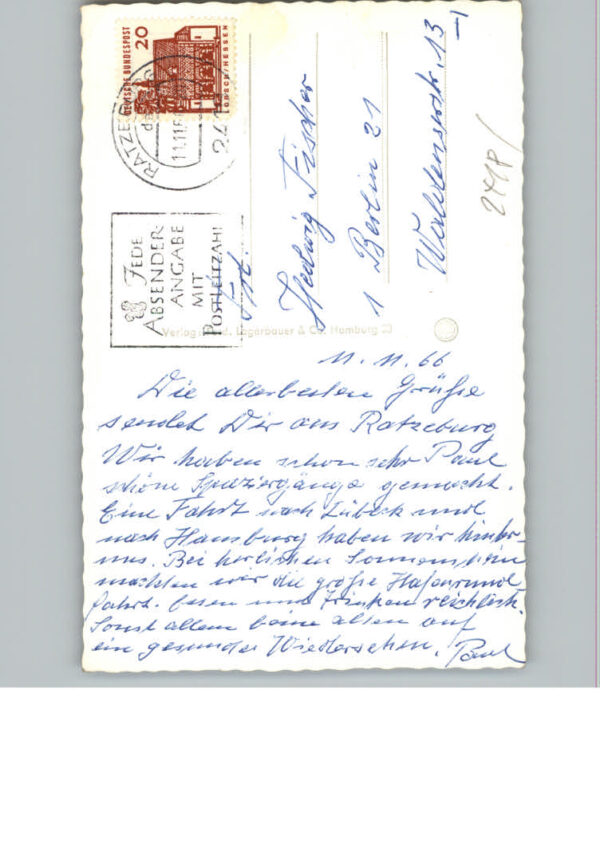 DEUTSCHE BUNDESPOST
20
LORSCH/HESSEN
RATZEBURG
11.11.6
241
JEDE
ABSENDER-
ANGABE
MIT
POSTLEITZAHL
Frl.
Hedwig Fischer
1 Berlin 21
Waldenserstr. 13
I
241P/
Verlag Lagerbauer & Co. Hamburg
11. 11. 66
Die allerbesten Grüße
sendet Dir aus Ratzeburg
Paul
Wir haben schon sehr
schöne Spaziergänge gemacht.
Eine Fahrt nach Lübeck und
nach Hamburg haben wir hinter
uns. Bei herlichen Sonnenschein
machten wir die große Hafenrund
fahrt. Essen und Trinken reichlich.
Sonst allem beim alten auf
ein gesundes Wiedersehen. Paul